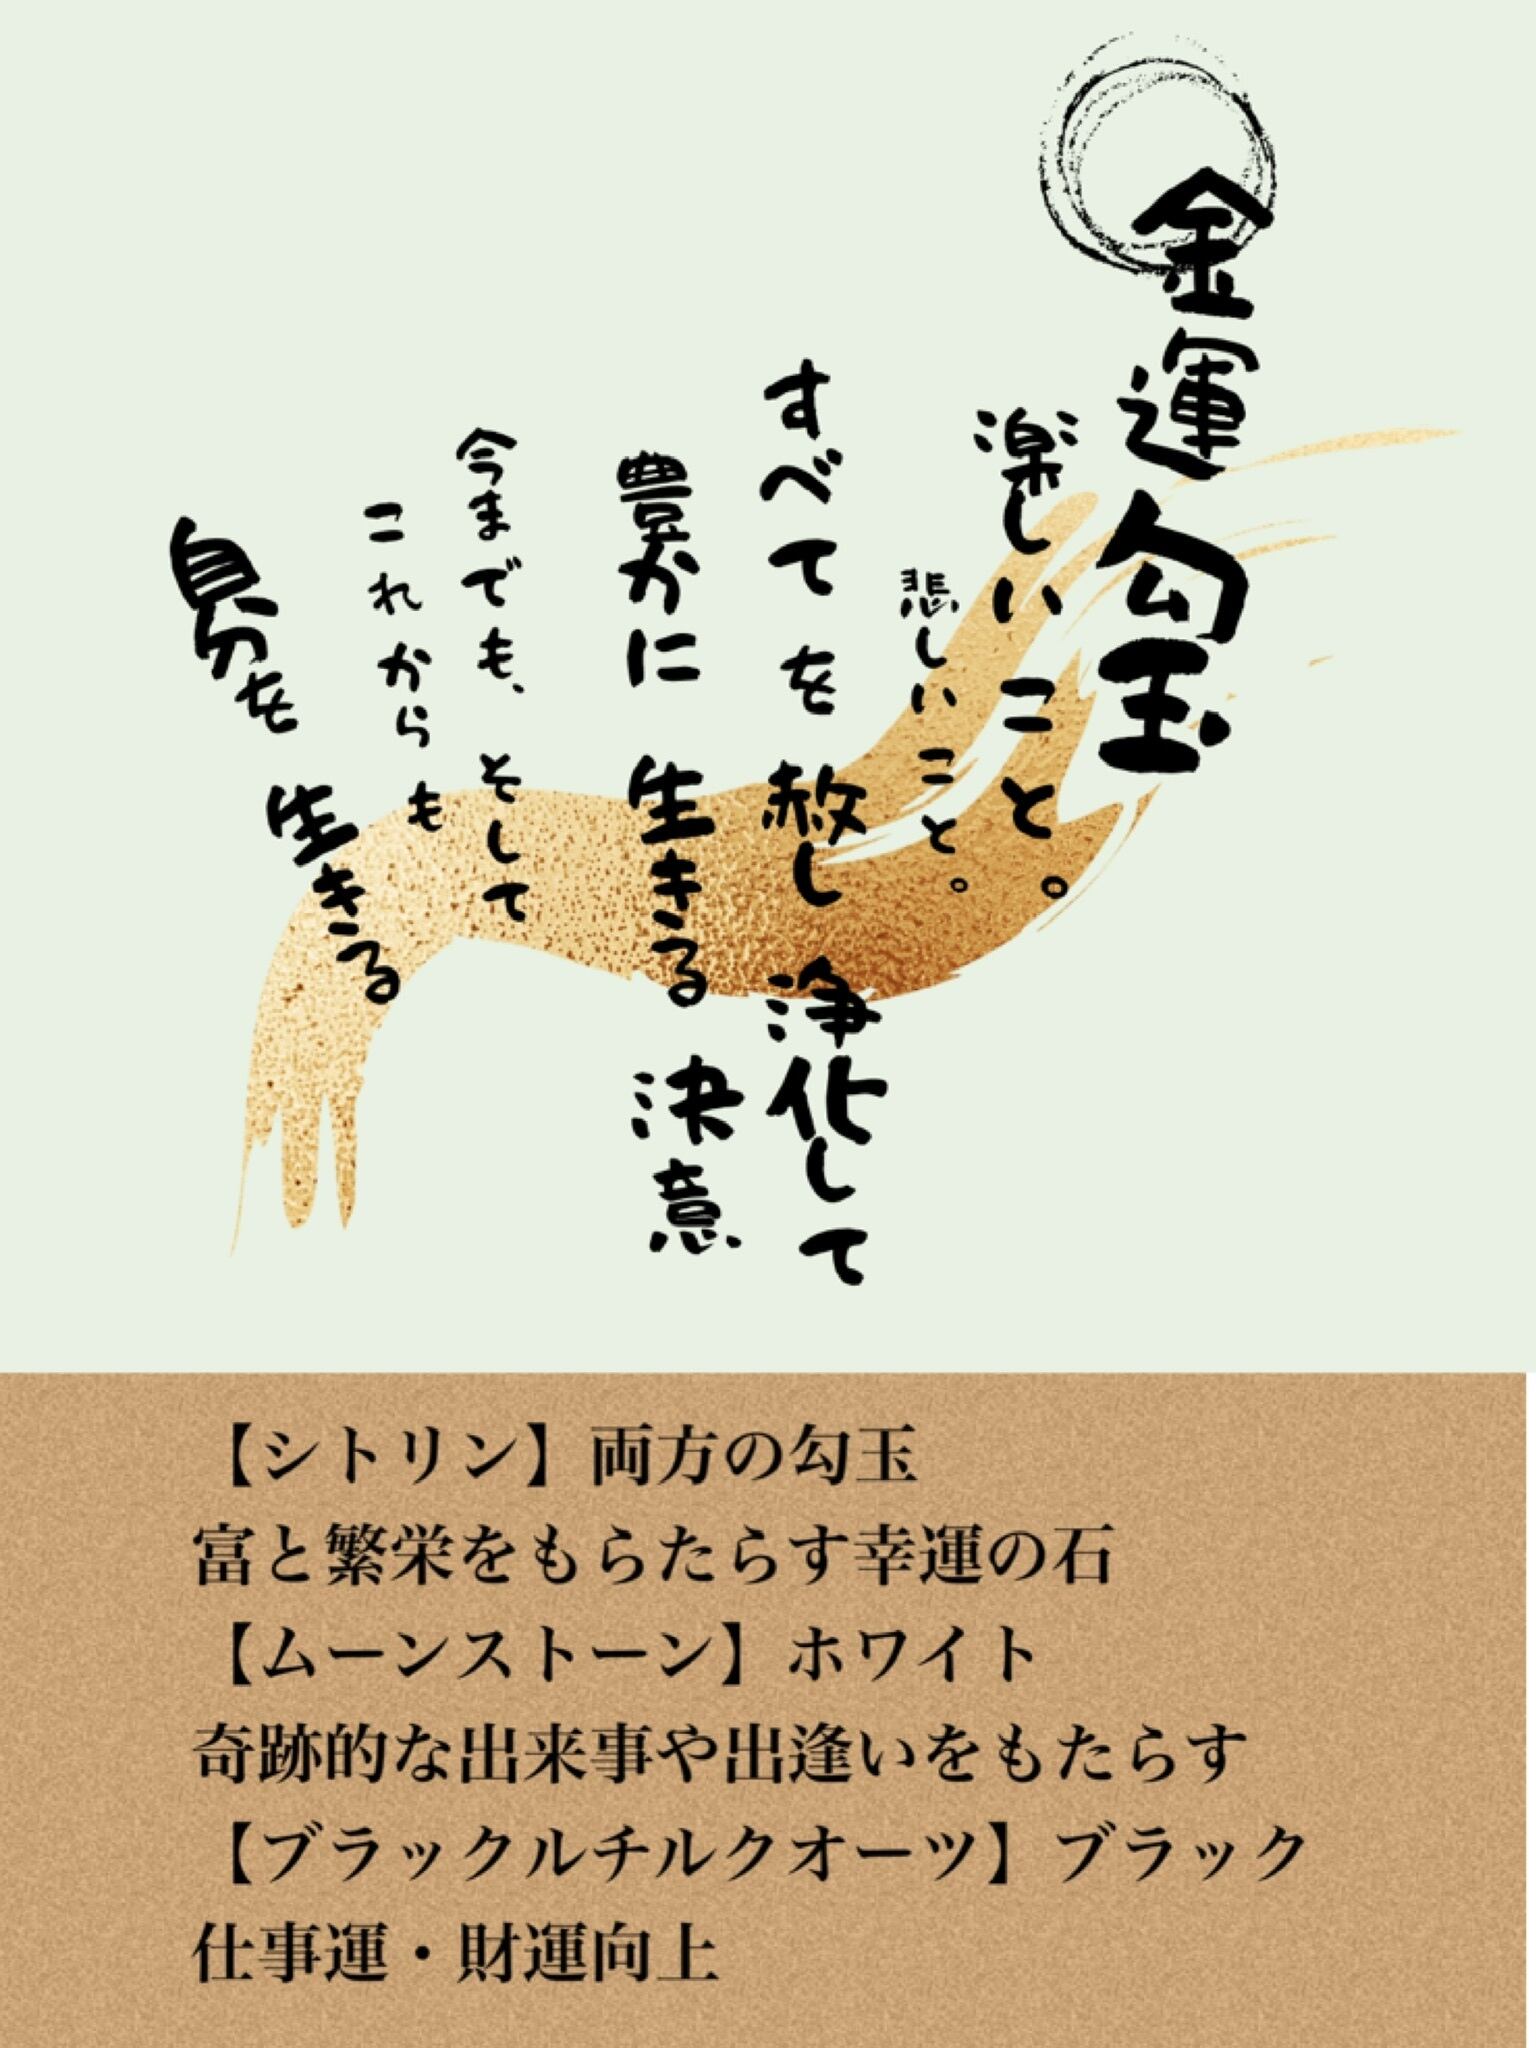 金運勾玉
楽しいこと。
悲しいこと。
すべてを赦し浄化して
豊かに生きる決意
今までも、そして
これからも
自分を生きる
【シトリン】両方の勾玉
富と繁栄をもらたらす幸運の石
【ムーンストーン】ホワイト
奇跡的な出来事や出逢いをもたらす
【ブラックルチルクオーツ】ブラック
仕事運・財運向上